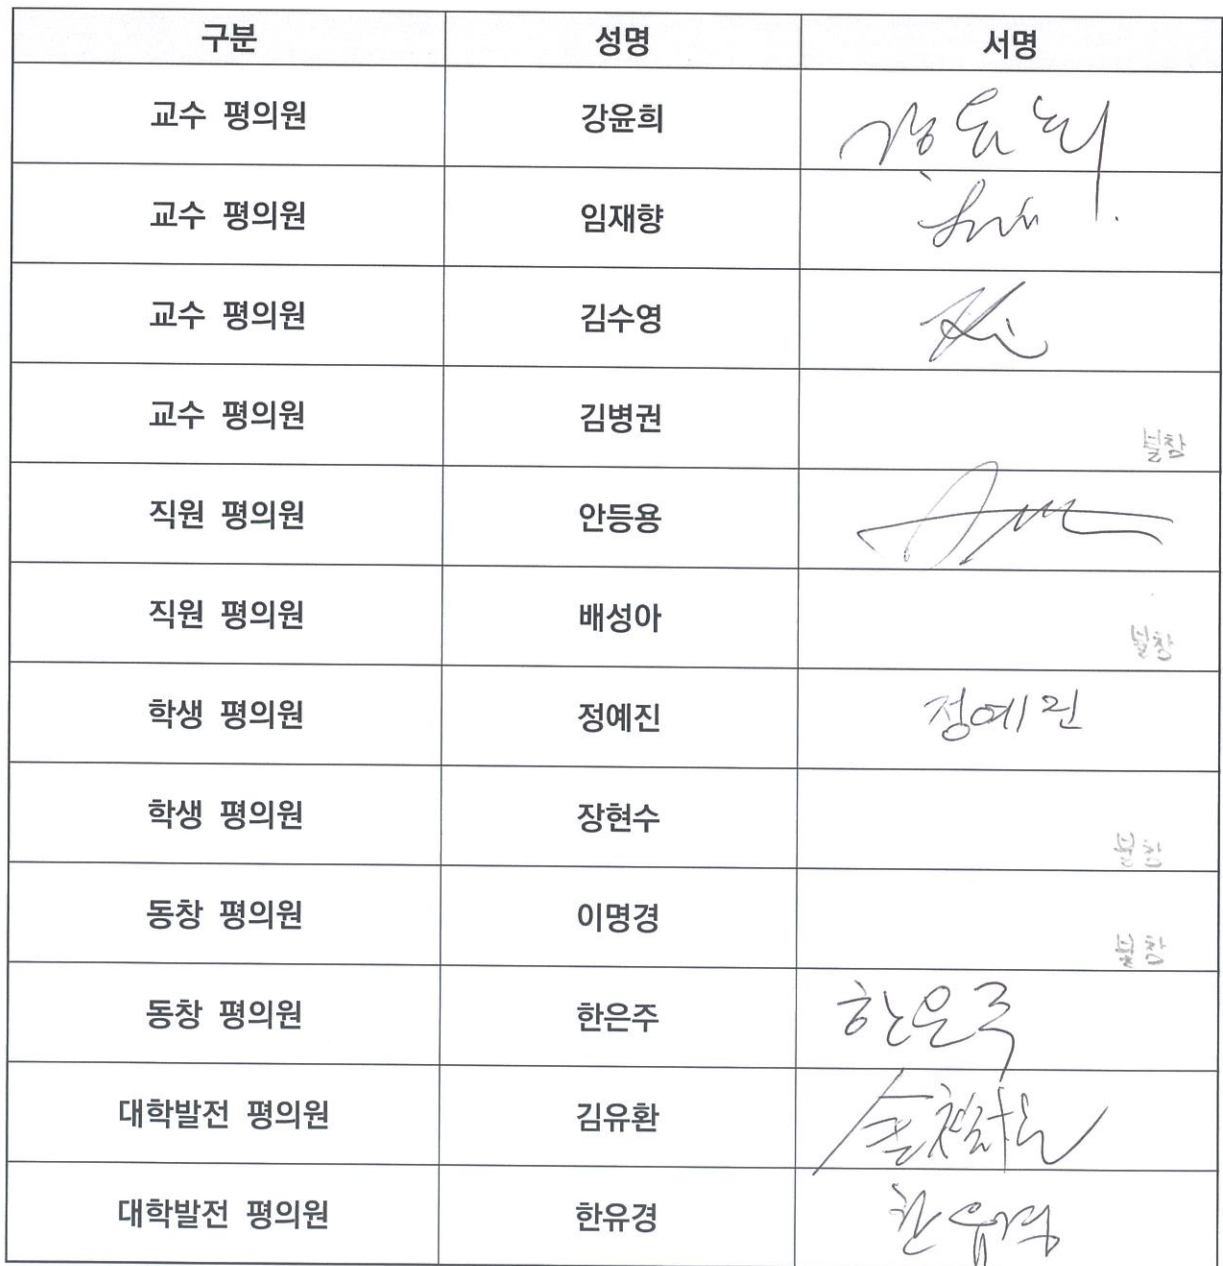 구분 성명 서명
교수 평의원 강윤희 강윤희
교수 평의원 임재향
교수 평의원 김수영
교수 평의원 김병권 불참
직원 평의원 안등용
직원 평의원 배성아 불참
학생 평의원 정예진 정예진
학생 평의원 장현수 불참
동창 평의원 이명경 불참
동창 평의원 한은주 한은주
대학발전 평의원 김유환
대학발전 평의원 한유경 한유경